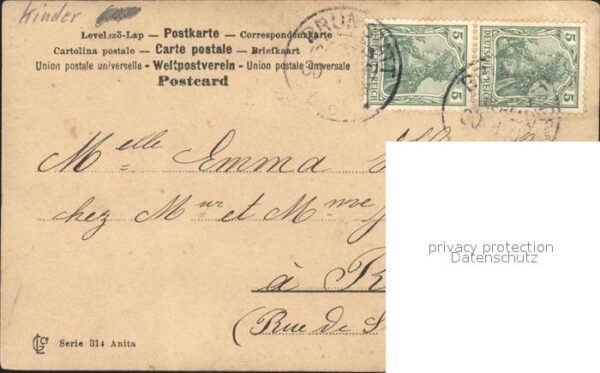 Kinder
Levelező-Lap — Postkarte — Correspondenzkarte
Cartolina postale — Carte postale — Briefkaart
Union postale universelle - Weltpostverein - Union postale universale
Postcard
5 5
DEUTSCHES REICH
5 5
Melle Emma
chez Mur et Mme
à
(Rue de S
privacy protection
Datenschutz
Serie 314 Anita